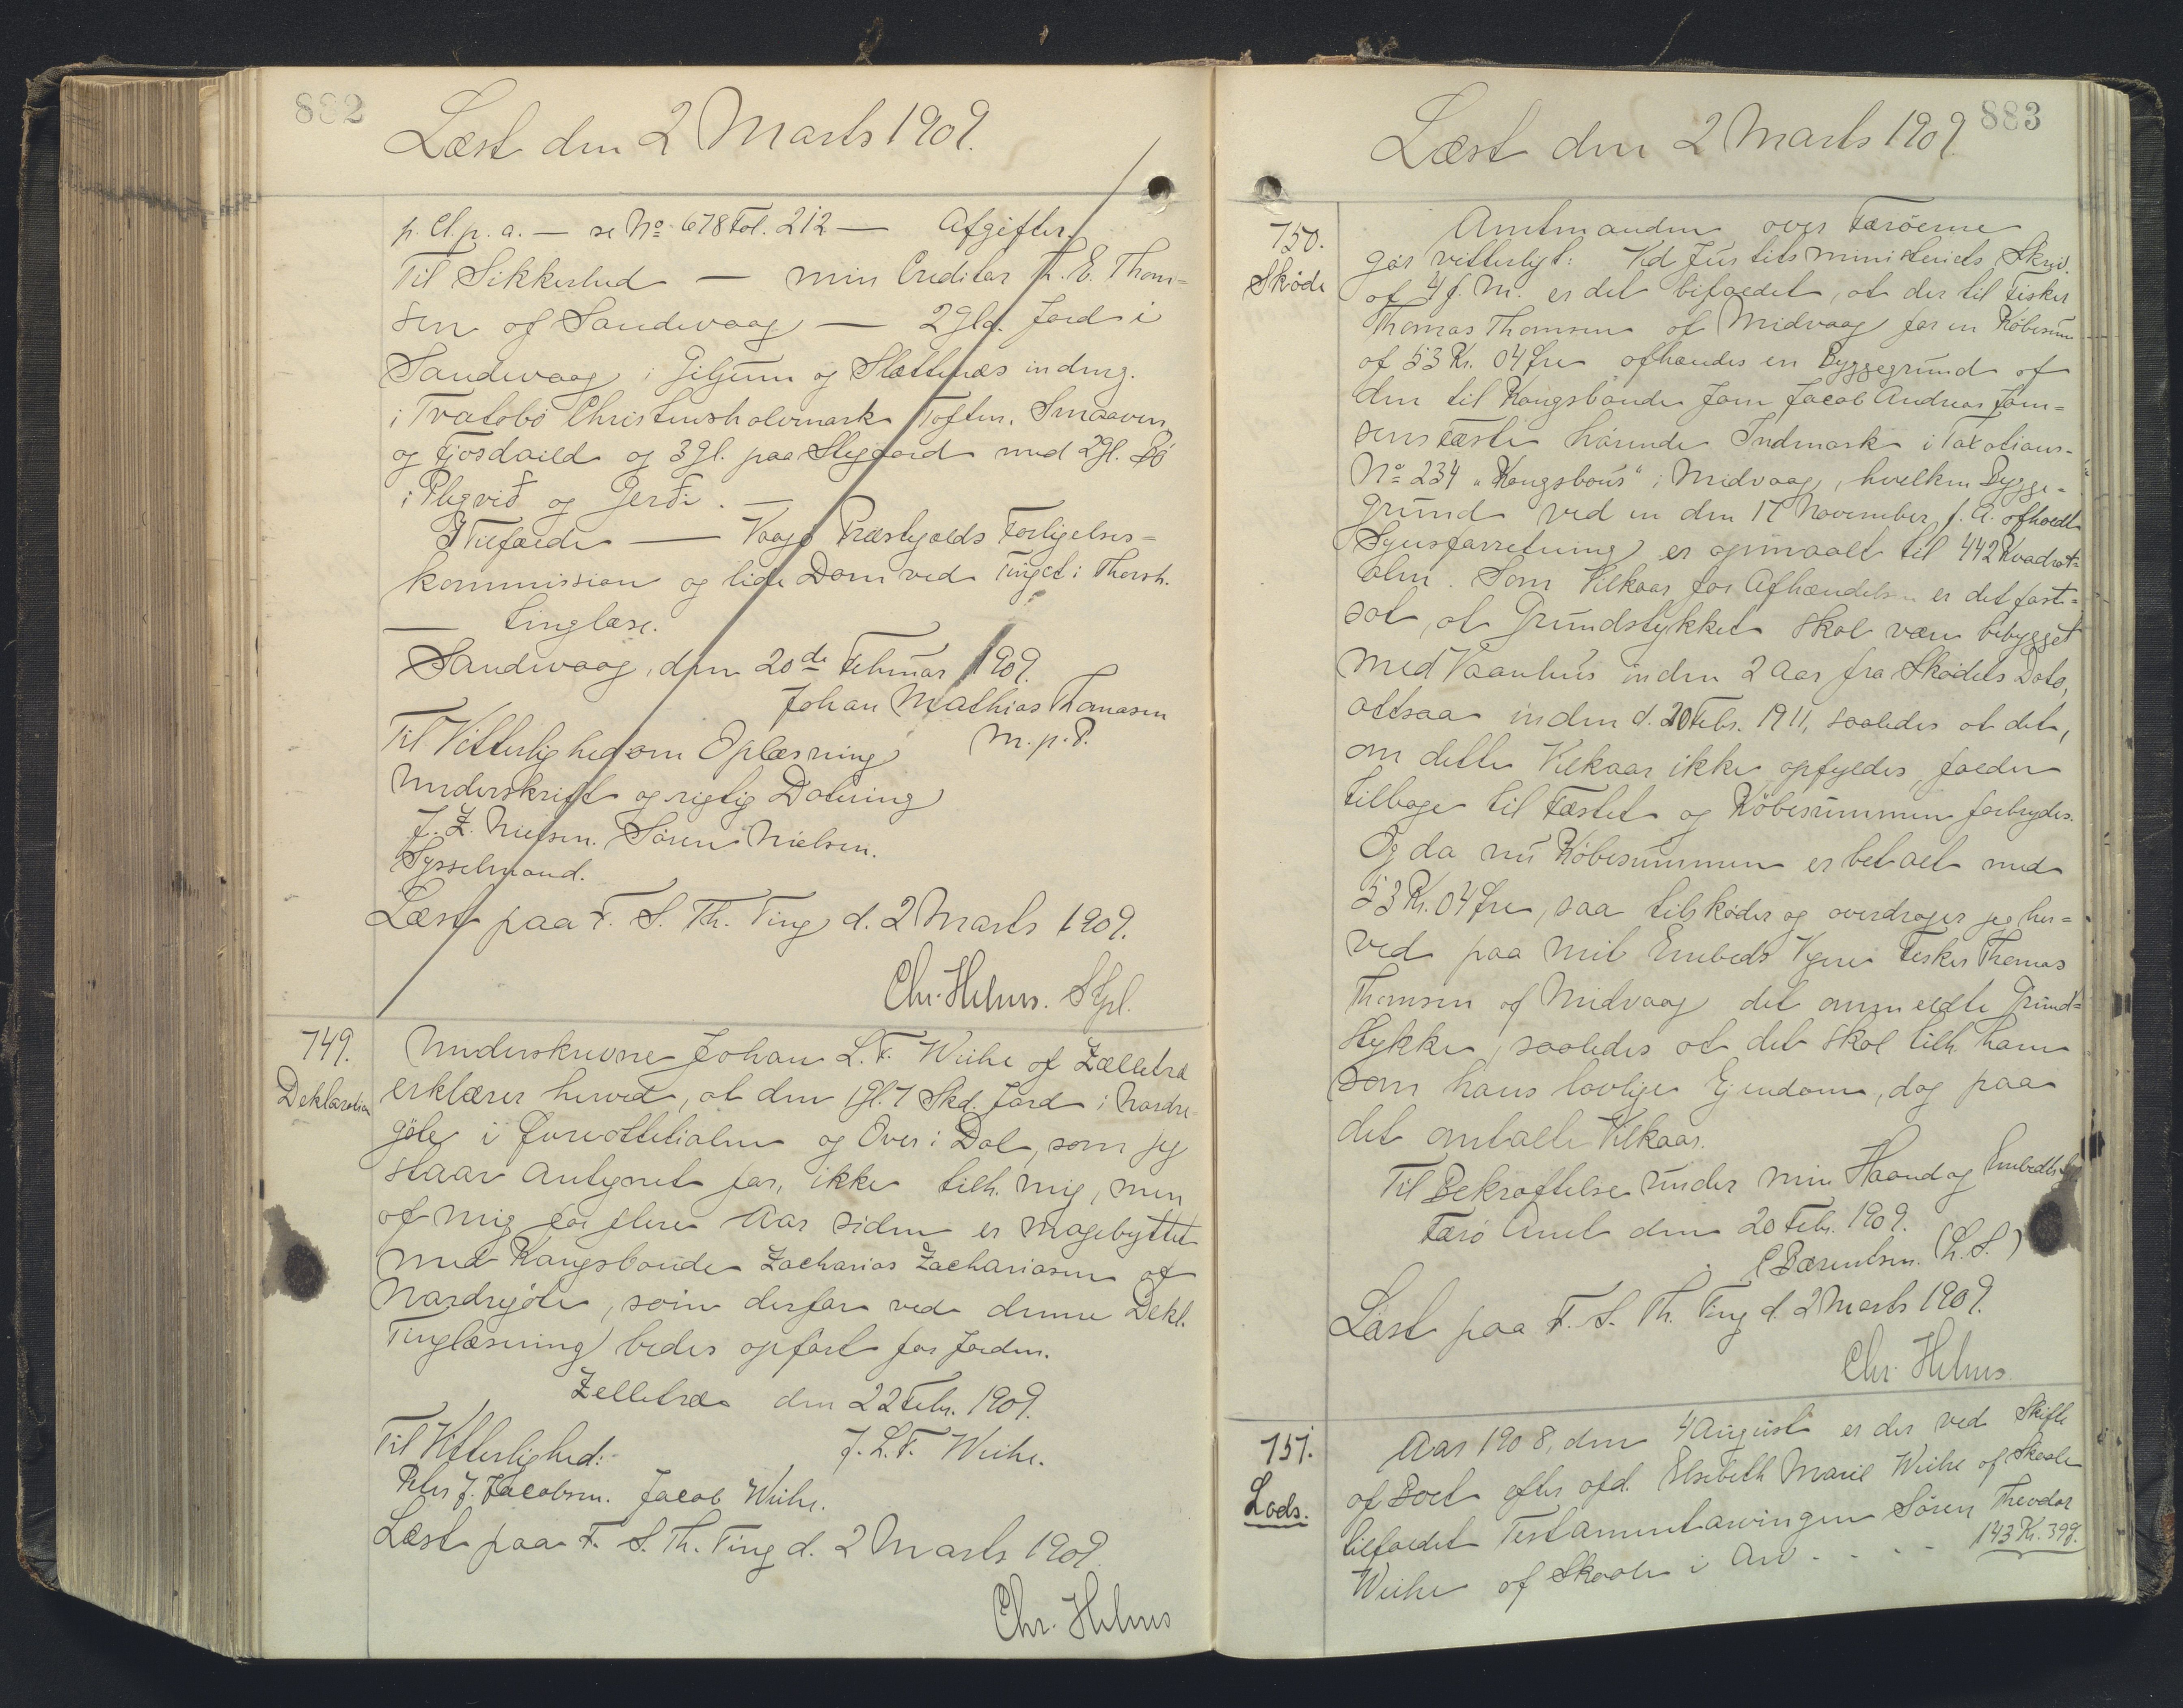 882
Læst den 2 Marts 1909.
p. Ct. p. a. — se No 678 Fol. 212 — Afgifter.
Til Sikkerhed — min Creditor Th. E. Thom=
sen af Sandevaag — 2 gld. Jord i
Sandevaag i Giljum og Slættenæs indmg.
i Tratobø Christensholvmark Toften, Smaaven
og Fjosdaild og 3 gl. paa Stegaard med 2 gl. Bø
i Plegvið og Gerði. —
I Tilfælde — Vaagø Præstegjælds Forligelses=
kommission og lide Dom ved Tinget i Thorsh.
— tinglæse.
Sandevaag, den 20de Februar 1909.
Johan Mathias Thomasen
m. p. P.
Til Vitterlighed om Oplæsning
Underskrift og rigtig Datering
J. Z. Nielsen. Søren Nielsen.
Sysselmand.
Læst paa F. S. Th. Ting d. 2 Marts 1909.
Chr. Helms. Stpl.
749.
Deklaration
Underskrevne Johan L. F. Weihe af Zelletræ
erklærer herved, at den 1 gl. 7 Skd. Jord i Nordre-
gøte i og Over i Dal, som jeg
staar antegnet for, ikke tilh. mig, men
af mig for flere Aar siden er magebyttet
med Kongsbonde Zacharias Zachariasen af
Nordregøte, som derfor ved denne Dekl.
Tinglæsning bedes opført for Jorden.
Zelletræ den 22 Febr. 1909.
J. L. F. Weihe.
Til Vitterlighed:
Peter J. Jacobsen. Jacob Weihe.
Læst paa F. S. Th. Ting d. 2 Marts 1909.
Chr. Helms
883
Læst den 2 Marts 1909
750.
Skøde
Amtmanden over Færöerne
gør vitterligt: Ved Justitsministeriets Skriv.
af 4 f. M. er det bifaldet, at der til Fisker
Thomas Thomsen af Midvaag for en Købesum
af 53 Kr. 04 Øre afhændes en Byggegrund af
den til Kongsbonde Jonn Jacob Andreas Jom=
sens Fæste hörende Indmark i Taxations-
No 234 "Kongsbous" i Midvaag, hvilken Bygge=
grund ved en den 17 November f. A. afholdt
Synsforretning er opmaalt til 442 Kvadrat=
alen. Som Vilkaar for Afhændelsen er det fast=
sat, at Grundstykket skal være bebygget
med Vaanhus inden 2 Aar fra Skødets Dato,
altsaa inden d. 20 Febr. 1911, saaledes at det,
om dette Vilkaar ikke opfyldes, falder
tilbage til Fæstet og Købesummen forbrydes.
Og da nu Købesummen er betalt med
53 Kr. 04 Øre, saa tilskøder og overdrager jeg her=
ved paa mit Embeds Vegne Fisker Thomas
Thomsen af Midvaag det ommeldte Grund=
stykke, saaledes at det skal tilh. ham
som hans lovlige Ejendom, dog paa
det omtalte Vilkaar.
Til Bekræftelse under min Haand og Embedts
Færö Amt den 20 Febr. 1909.
C Bærentsen. (L. S.)
Læst paa F. S. Th. Ting d. 2 Marts 1909.
Chr. Helms.
751.
Lods.
Aar 1908, den 4 August er der ved Skifte
af Boet efter afd. Elsebeth Marie Weihe af Skaale
tilfaldet Testamentarvingen Søren Theodor
Weihe af Skaale i Arv - - - - 143 Kr. 39 Ø.